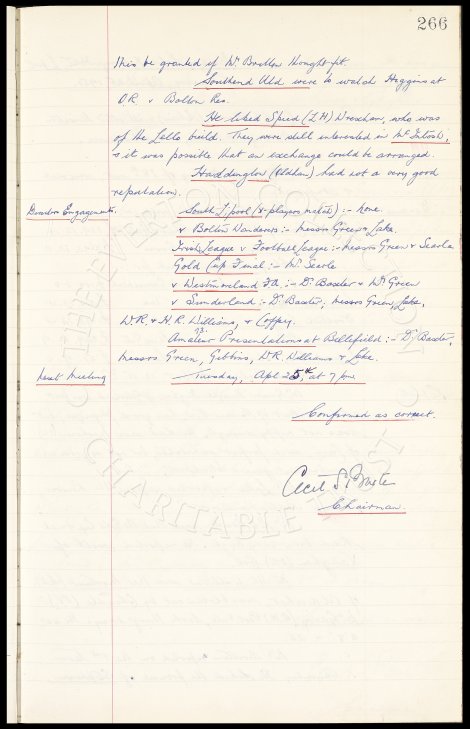 266
this be granted if Mr Bratton thought fit.
Southend Utd were to watch Higgins at
O.R. v Bolton Res.
He liked Speed (L H) Wrexham, who was
of the Lello build. They were still interested in McIntosh,
& it was possible that an exchange could be arranged.
Haddington (Oldham) had not a very good
reputation.
Directors Engagements. South L'pool (8-players match) :- none.
v Bolton Wanderers :- Messrs Green & Lake.
Irish League v Football League :- Messrs Green & Searle
Gold Cup Final :- Mr Searle
v Westmoreland FA :- Dr Baxter & Mr Green
v Sunderland :- Dr Baxter, Messrs Green, Lake,
W.R. & H.R. Williams, & Coffey.
Amateur Presentations at Bellefield :- Dr Baxter,
Messrs Green, Gibbins, W.R. Williams & Lake.
Next Meeting Tuesday, Apl 25th, at 7 pm
Confirmed as correct.
Cecil S. Baxter
Chairman
CHARITABLE